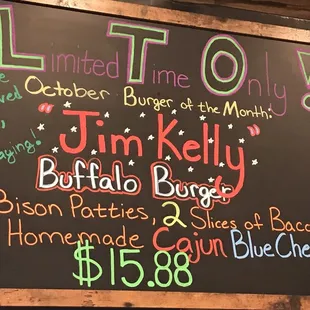 Limited Time Only!
October Burger of the Month:
"Jim Kelly"
Buffalo Burger
Bison Patties, 2 Slices of Baco
Homemade Cajun Blue Che
$15.88